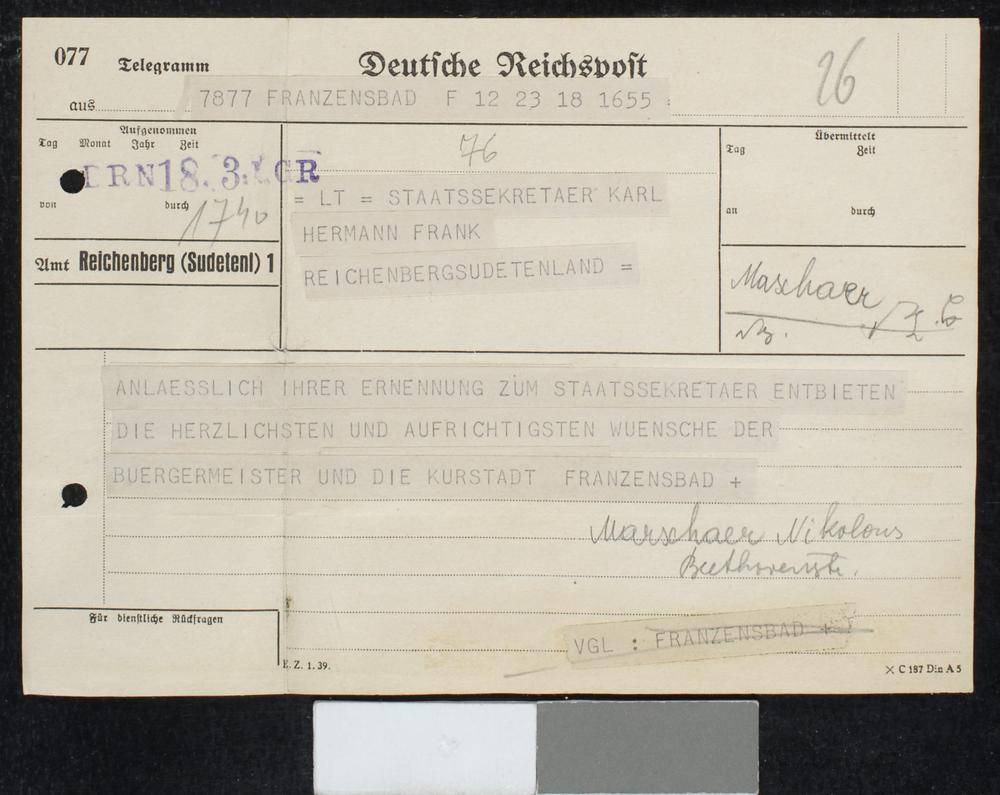 077 Telegramm Deutsche Reichspost 26
aus 7877 FRANZENSBAD F 12 23 18 1655
Aufgenommen
Tag Monat Jahr Zeit
18. 3.
von durch
1740
Amt Reichenberg (Sudetenl) 1
76
= LT = STAATSSEKRETAER KARL
HERMANN FRANK
REICHENBERGSUDETENLAND =
Übermittelt
Tag Zeit
an durch
Maschaer
ANLAESSLICH IHRER ERNENNUNG ZUM STAATSSEKRETAER ENTBIETEN
DIE HERZLICHSTEN UND AUFRICHTIGSTEN WUENSCHE DER
BUERGERMEISTER UND DIE KURSTADT FRANZENSBAD +
Marschaer Nikolous
Beethovenstr.
Für dienstliche Rückfragen
VGL : FRANZENSBAD +
E. Z. 1. 39.
× C 187 Din A 5